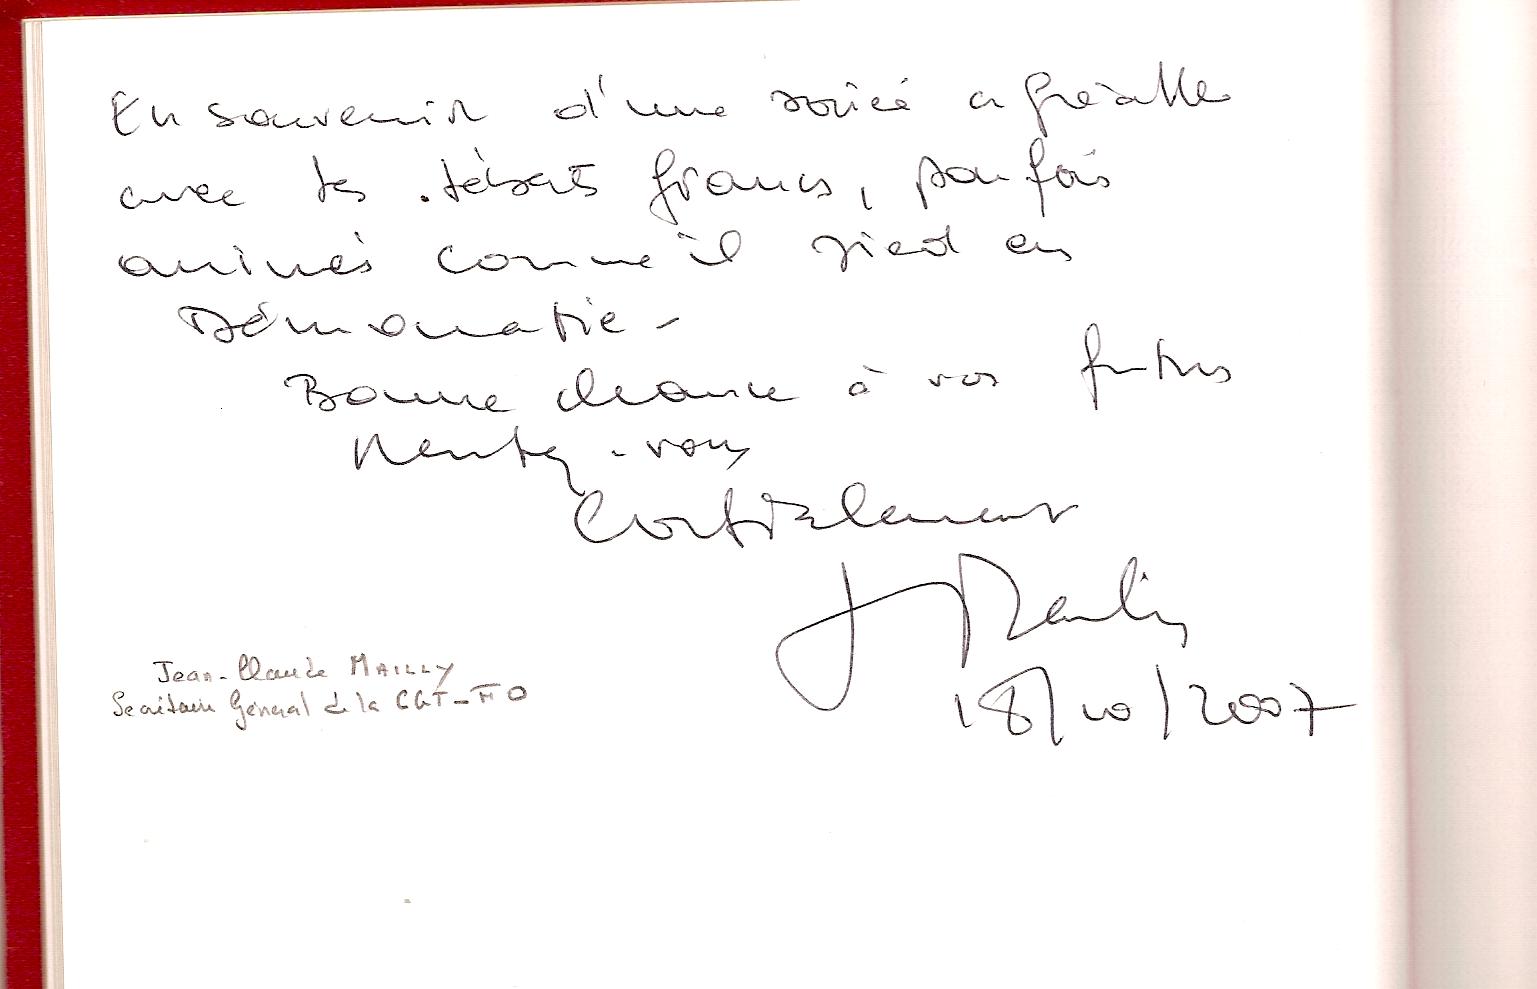 En souvenir d'une soirée agréable
avec des débats francs, parfois
animés comme il sied en
Démocratie -
Bonne chance à vos futurs
Rendez-vous
Cordialement
JC Mailly
18/10/2007
Jean-Claude MAILLY
Secrétaire Général de la CGT-FO